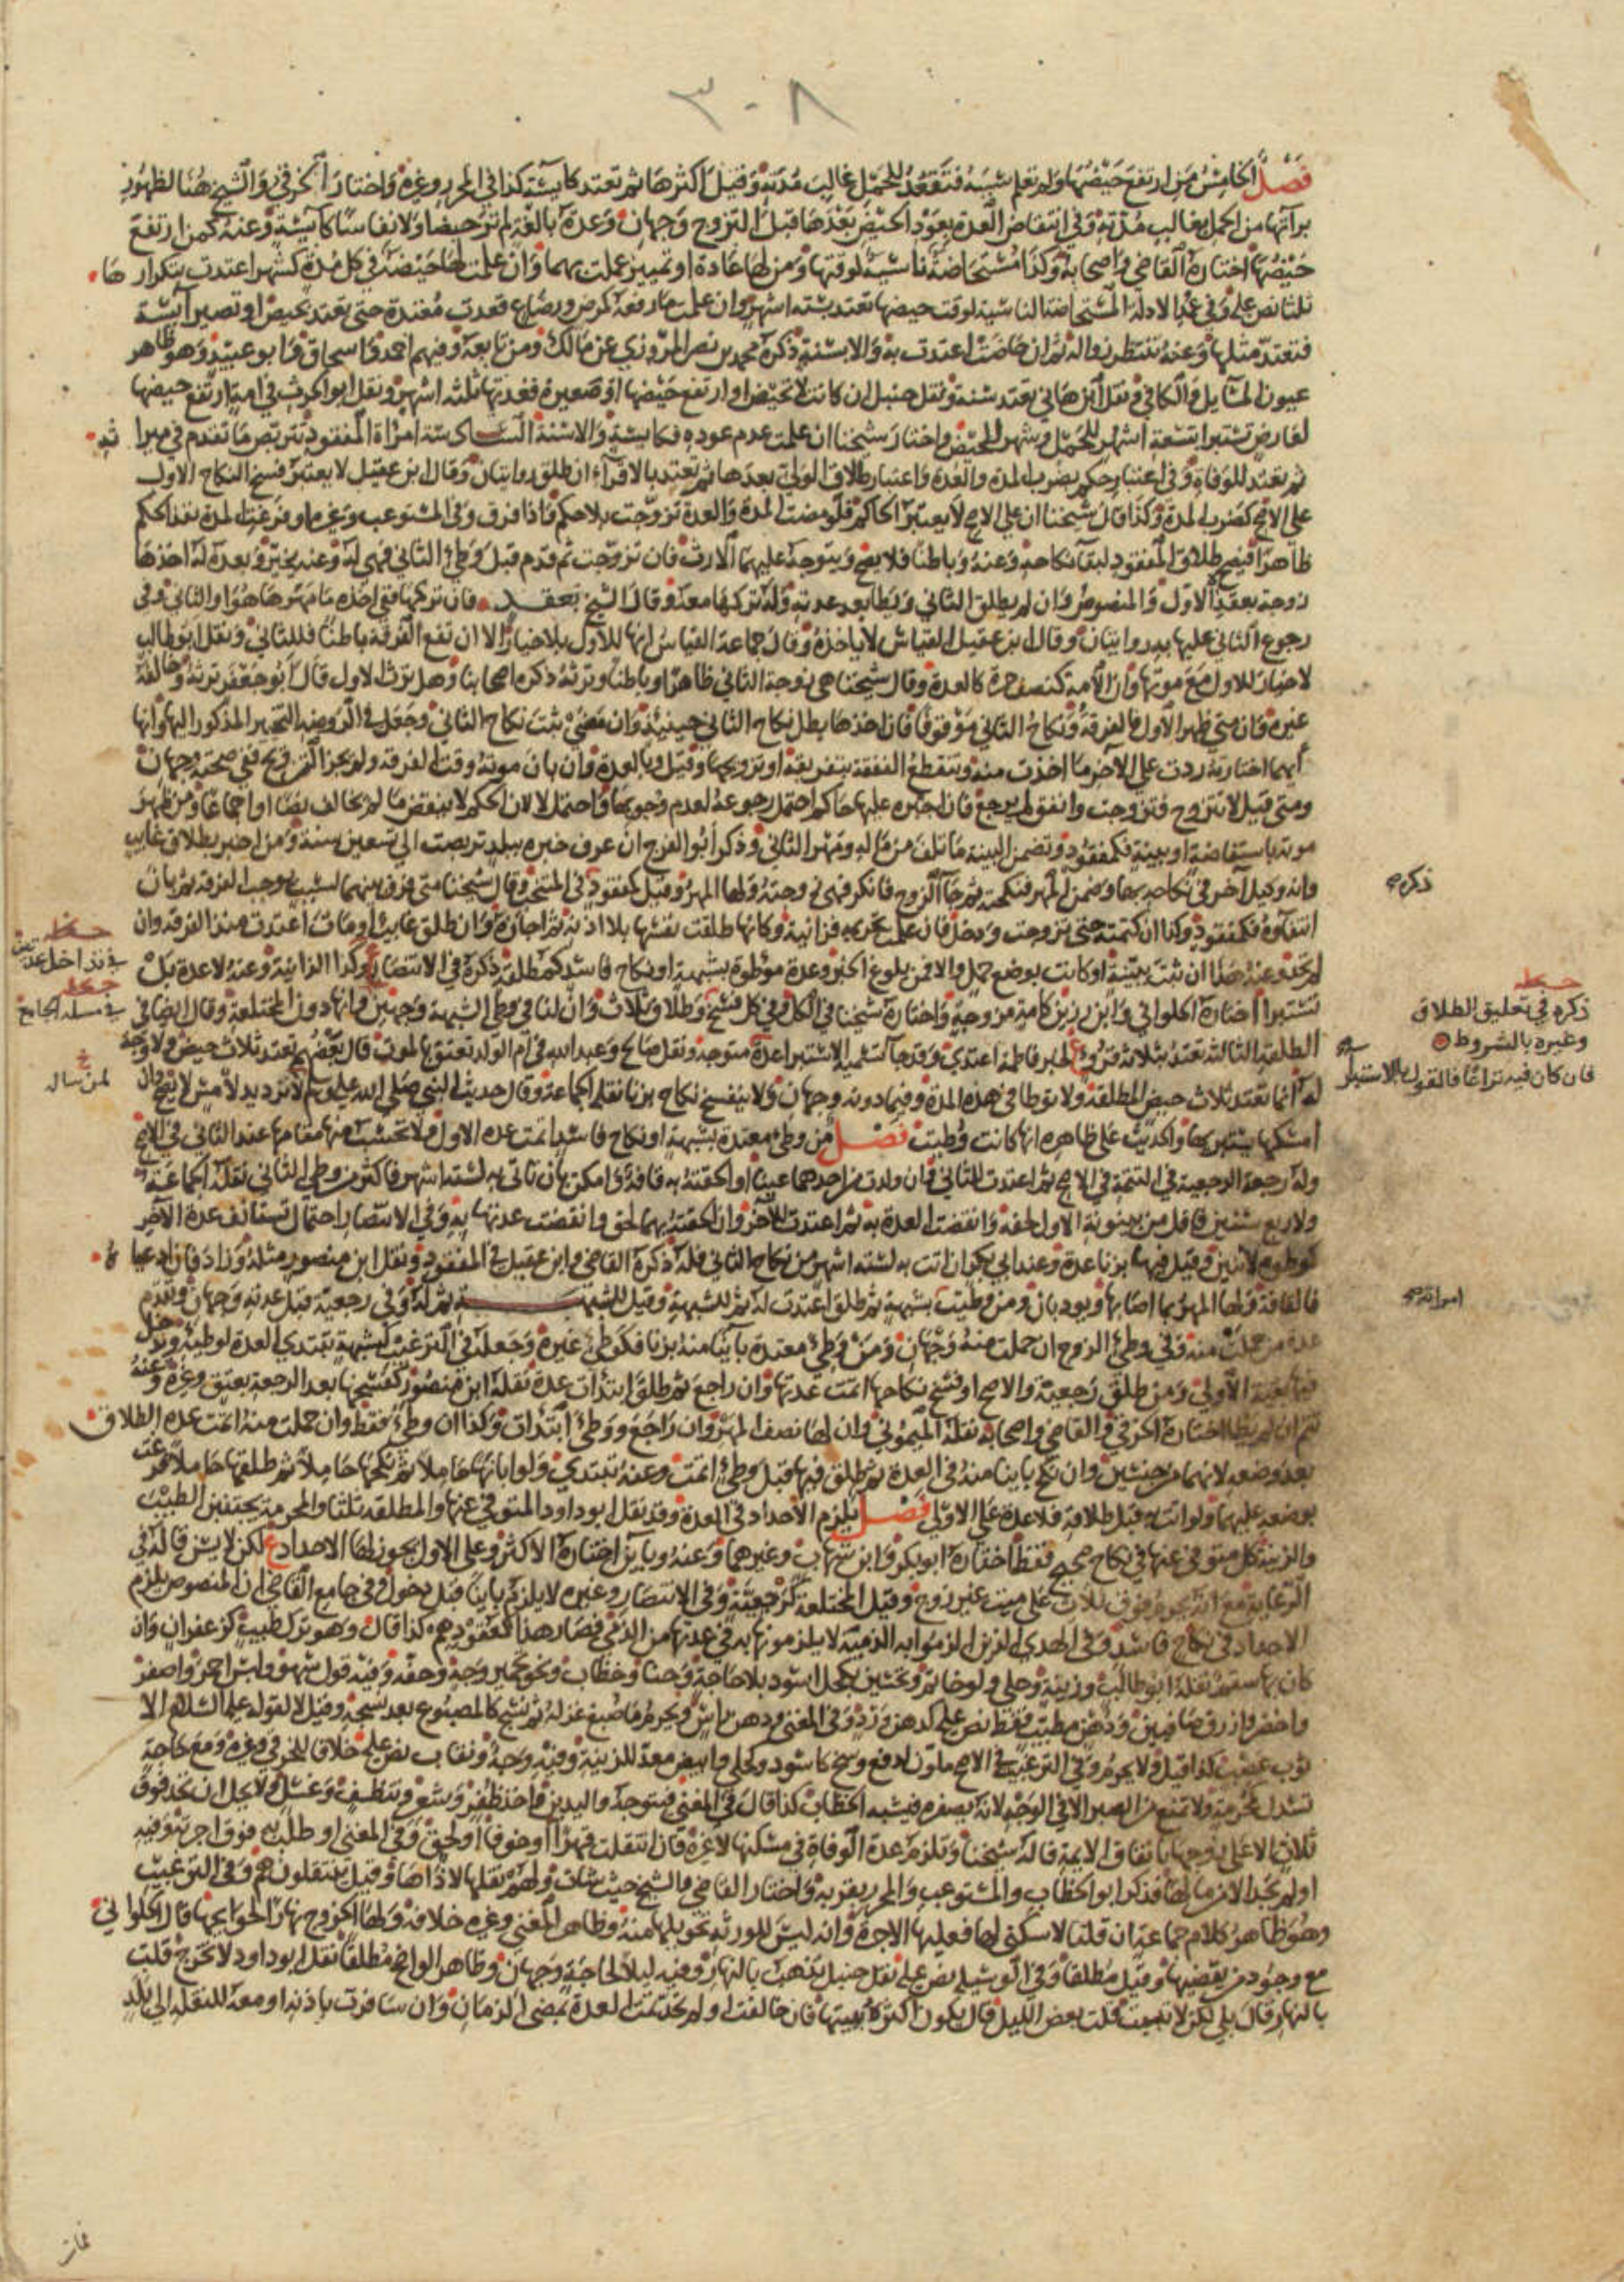 ٣٠٨
فصل الخامس من ارتفع حيضها ولم تعلم سببه فتقعد للحمل غالب مدته وقيل اكثرها ثم تعتد كآيسة كذا في المحرر وغيره واختار الخرقي والشيخ هنا لظهور
برآتها من الحمل بغالب مدته وفي انتقاض العدة بعود الحيض بعدها قبل التزوج وجهان وعدة بالغة لم تر حيضا ولا نفاسا كآيسة وعنه كمن ارتفع
حيضها اختاره القاضي واصحابه وكذا مستحاضة ناسية لوقتها ومن لها عادة او تمييز عملت بهما وان علمت لها حيضة في كل مدة كشهر اعتدت بتكرارها
ثلثا نص عليه وفي عمد الادلة المستحاضة الناسية لوقت حيضها تعتد بستة اشهر وان علمت ما رفعه كمرض ورضاع قعدت معتدة حتى تعتد بحيض او تصير آيسة
فتعتد مثلها وعنه تنتظر زواله ثم ان حاضت اعتدت به والا بسنة ذكره محمد بن نصر المروزي عن مالك ومن تابعه وفيهم احمد واسحاق وابو عبيد وهو ظاهر
عيون المسايل والكافي ونقل ابن هاني تعتد سنة ونقل حنبل ان كانت لا تحيض او ارتفع حيضها او صغيرة فعدتها ثلثة اشهر ونقل ابو الحرث في امة ارتفع حيضها
لعارض تستبرا بتسعة اشهر للحمل وشهر للحيض واختار شيخنا ان علمت عدم عوده فكايسة والا سنة السادسة امراة المفقود تتربص ما تقدم في ميراثه
ثم تعتد للوفاة وفي اعتبار حكم بضرب المدة والعدة واعتبار طلاق الولي بعدها ثم تعتد بالاقراء ان طلق روايتان وقال ابن عقيل لا يعتبر فسخ النكاح الاول
على الاصح كضرب المدة وكذا قال شيخنا ان على الاصح لا يعتبر الحاكم فلو مضت المدة والعدة تزوجت بلا حكم واذا فرق وفي المستوعب وغيره او فرغت المدة نفذ الحكم
ظاهرا فيصح طلاق المفقود لبقآ نكاحه وعنه وباطنا فلا يصح ويتوجه عليهما الارث فان تزوجت ثم قدم قبل وطئ الثاني فهي له وعنه يخير وبعده له اخذها
زوجة بعقد الاول والمنصوص وان لم يطلق الثاني ويطا بعد عدته وله تركها معه وقال الشيخ بعقد فان تركها ففي اخذه ما مهرها هو او الثاني وفي
رجوع الثاني عليها به روايتان وقال ابن عقيل القياس لا ياخذه وقال جماعة القياس انها للاول بلا خيار الا ان تقع الفرقة باطنا فللثاني ونقل ابو طالب
لا خيار للاول مع موتها وان الامة كنصف حرة كالعدة وقال شيخنا هي زوجة الثاني ظاهرا وباطنا وترثه ذكره اصحابنا وهل ترث الاول قال ابو جعفر ترثه وخالفه
غيره وان متى ظهر الاول فالفرقة ونكاح الثاني موقوفا فان اخذها بطل نكاح الثاني حينيذ وان مضى ثبت نكاح الثاني وجعل في الروضة التخيير المذكور اليها وانها
ايهما اختارته ردت على الآخر ما اخذت منه وتنقطع النفقة بتفريقه او تزويجها وقيل وبالعدة وان بان موته وقت الفرقة ولم يجز التزويج ففي صحته وجهان
ومتى قيل لا تتزوج فتزوجت وانفق لم يرجع فان اجبره عليها حاكم احتمل رجوعه لعدم وجوبها واحتمل لا لان الحكم لا ينقض ما لم يخالف نصا او اجماعا ومن ظهر
موته باستفاضة او بينة فكمفقود وتضمن البينة ما تلف من ماله ومهر الثاني وذكر ابو الفرج ان عرف خبره ببلد تربصت الى تسعين سنة ومن اخبر بطلاق غايب
وانه وكيل آخر في نكاحه بها وضمن المهر فنكحته ثم جآ الزوج فانكر فهي زوجته ولها المهر وقيل كمفقود في المنتخب وقال شيخنا متى فرق بينهما لسبب يوجب الفرقة ثم بان
انتفاؤه فكمفقود وكذا ان كتمته حتى تزوجت ودخل فان علمت بتحريمه فزانية وكانها طلقت نفسها بلا اذنه ثم اجازه وان طلق غايب او مات اعتدت منذ الفرقة وان
لم تحد وعنه هذا ان ثبت ببينة او كانت بوضع حمل والا فمن بلوغ الخبر وعدة موطوة بشبهة او نكاح فاسد كمطلقة ذكره في الانتصار وكذا الزانية وعنه لا عدة بل
تستبرا اختاره الحلواني وابن رزين كامة مزوجة واختاره شيخنا في الكل وفي كل فسخ وطلاق ثلاث وان لنا في وطئ الشبهة وجهين وانها دون المختلعة وقال ايضا في
الطلقة الثالثة تعتد بثلاثة قروء لخبر فاطمة اعتدي وقد جآ تسمية الاستبرا عدة متوجه ونقل صالح وعبد الله في ام الولد تعتق بالموت قال بعضهم تعتد ثلاث حيض ولا وجه
له انما تعتد ثلاث حيض المطلقة ولا توطا في هذه المدة وفيما دونه وجهان ولا ينفسخ نكاح بزنا نقله الجماعة وقال حديث النبي صلى الله عليه وسلم لا ترد يد لامس لا يصح وان
امسكها يستبريها والحديث على ظاهره انها كانت وطيت فصل من وطئ معتدة بشبهة او نكاح فاسد اتمت عدة الاول ولا تحتسب منها مقامها عند الثاني في الاصح
وله رجعة الرجعية في التتمة في الاصح ثم اعتدت للثاني فان ولدت من احدهما عينا او الحقته به قافة وامكن بان تاتي به لستة اشهر فاكثر من وطئ الثاني نقله الجماعة
ولاربع سنين فاقل من بينونة الاول لحقه وانقضت العدة به ثم اعتدت للآخر وان الحقته بهما لحق وانقضت عدتها به وفي الانتصار احتمال تستانف عدة الآخر
كموطوة لاثنين وقيل فيها بزنا عدة وعند ابي بكر ان اتت به لستة اشهر من نكاح الثاني فله ذكره القاضي وابن عقيل في المفقود ونقل ابن منصور مثله وزاد فان ادعياه
فالقافة ولها المهر بما اصابها ويودبان ومن وطيت بشبهة ثم طلق اعتدت له ثم للشبهة وقيل للشبهة ثم له وفي رجعته قبل عدته وجهان وتقدم
عدة من حملت منه وفي وطئ الزوج ان حملت منه وجهان ومن وطئ معتدة باينا منه بزنا فكوطئ غيره وجعله في الترغيب كشبهة تبتدي العدة لوطئه وتدخل
فيها بقية الاولى ومن طلق رجعية والاصح او فسخ نكاحها اتمت عدتها وان راجع ثم طلق ابتدات عدة نقله ابن منصور كفسخها بعد الرجعة بعتق وغيره وعنه
تتم ان لم يطا اختاره الخرقي والقاضي واصحابه نقله الميموني وان لها نصف المهر وان راجع ووطئ ابتدات وكذا ان وطئ فقط وان حملت منه اتمت عدة الطلاق
بعد وضعه لانهما من جنسين وان نكح باينا منه في العدة ثم طلق فيها قبل وطئ اتمت وعنه تبتدي ولو ابانها حاملا ثم نكحها حاملا ثم طلقها حاملا فرغت
بوضعه عليهما ولو اتت به قبل طلاقه فلا عدة على الاولى فصل يلزم الاحداد في العدة وقد نقل ابو داود المتوفى عنها والمطلقة ثلثا والمحرمة يجتنبن الطيب
والزينة كل متوفى عنها في نكاح صحيح فقط اختاره ابو بكر وابن شهاب وغيرهما وعنه وباين اختاره الاكثر وعلى الاول يجوز لها الاحداد ع لكن لا يسن قاله في
الرعاية مع انه يحرم فوق ثلاث على ميت غير زوج وقيل المختلعة كرجعية وفي الانتصار وغيره لا يلزم باينا قبل دخول وفي جامع القاضي ان المنصوص يلزم
الاحداد في نكاح فاسد وفي الهدي الذين الزموا به الذمية لا يلزمونها به في عدتها من الذمي فصار هذا كعقودهم كذا قال وهو ترك طيب كزعفران وان
كان بها سقم نقله ابو طالب وزينة وحلي ولو خاتم وتحسين بكحل اسود بلا حاجة وحنا وخضاب ونحو تحمير وجه وحفه وفيه قول سهو ولبس احمر واصفر
واخضر وازرق صافيين ودهن مطيب فقط نص عليه كدهن ورد وفي المغني ودهن راس ويحرم ما صبغ غزله ثم نسج كالمصبوغ بعد نسجه وقيل لا لقوله عليه السلام الا
ثوب عصب كذا قيل ولا يحرم وفي الترغيب في الاصح ملون لدفع وسخ كاسود وكحلي وابيض معد للزينة وفيه وجه ونقاب نص عليه خلافا للخرقي وغيره ومع حاجة
تسدل كمحرمة ولا تمنع من الصبر الا في الوجه لانه يصفره فيشبه الخضاب كذا قال في المغني فيتوجه واليدين واخذ ظفر وشعر وتنظيف وغسل ولا يحل ان تحد فوق
ثلاث الا على زوجها باتفاق الايمة قاله شيخنا وتلزم عدة الوفاة في مسكنها لا غيره فان انتقلت قهرا او خوفا او لحق وفي المغني او طلب به فوق اجرته وفيه
او لم تجد الا من مالها فذكر ابو الخطاب والمستوعب والمحرر بقربه واختار القاضي والشيخ حيث شات ولهم نقلها لاذاها وقيل ينتقلون هم وفي الترغيب
وهو ظاهر كلام جماعة ان قلنا لا سكنى لها فعليها الاجرة وانه ليس للورثة تحويلها منه وظاهر المغني وغيره خلافه ولها الخروج نهارا لحوايجها قال الحلواني
مع وجود من يقضيها وقيل مطلقا وفي الوسيلة نص عليه نقل حنبل تذهب بالنهار وفيه ليلا لحاجة وجهان وظاهر الواضح مطلقا نقل ابو داود لا تخرج قلت
بالنهار قال بلى لكن لا تبيت قلت بعض الليل قال يكون اكثره ببيتها فان خالفت او لم تحد تمت العدة بمضي الزمان وان سافرت باذنه او معه للنقلة الى بلد
ذكره
ذكره في تعليق الطلاق
وغيره بالشروط
فان كان فيه نزاعا فالقول بالاستبرا
في مسلة الجامع
لمن ساله